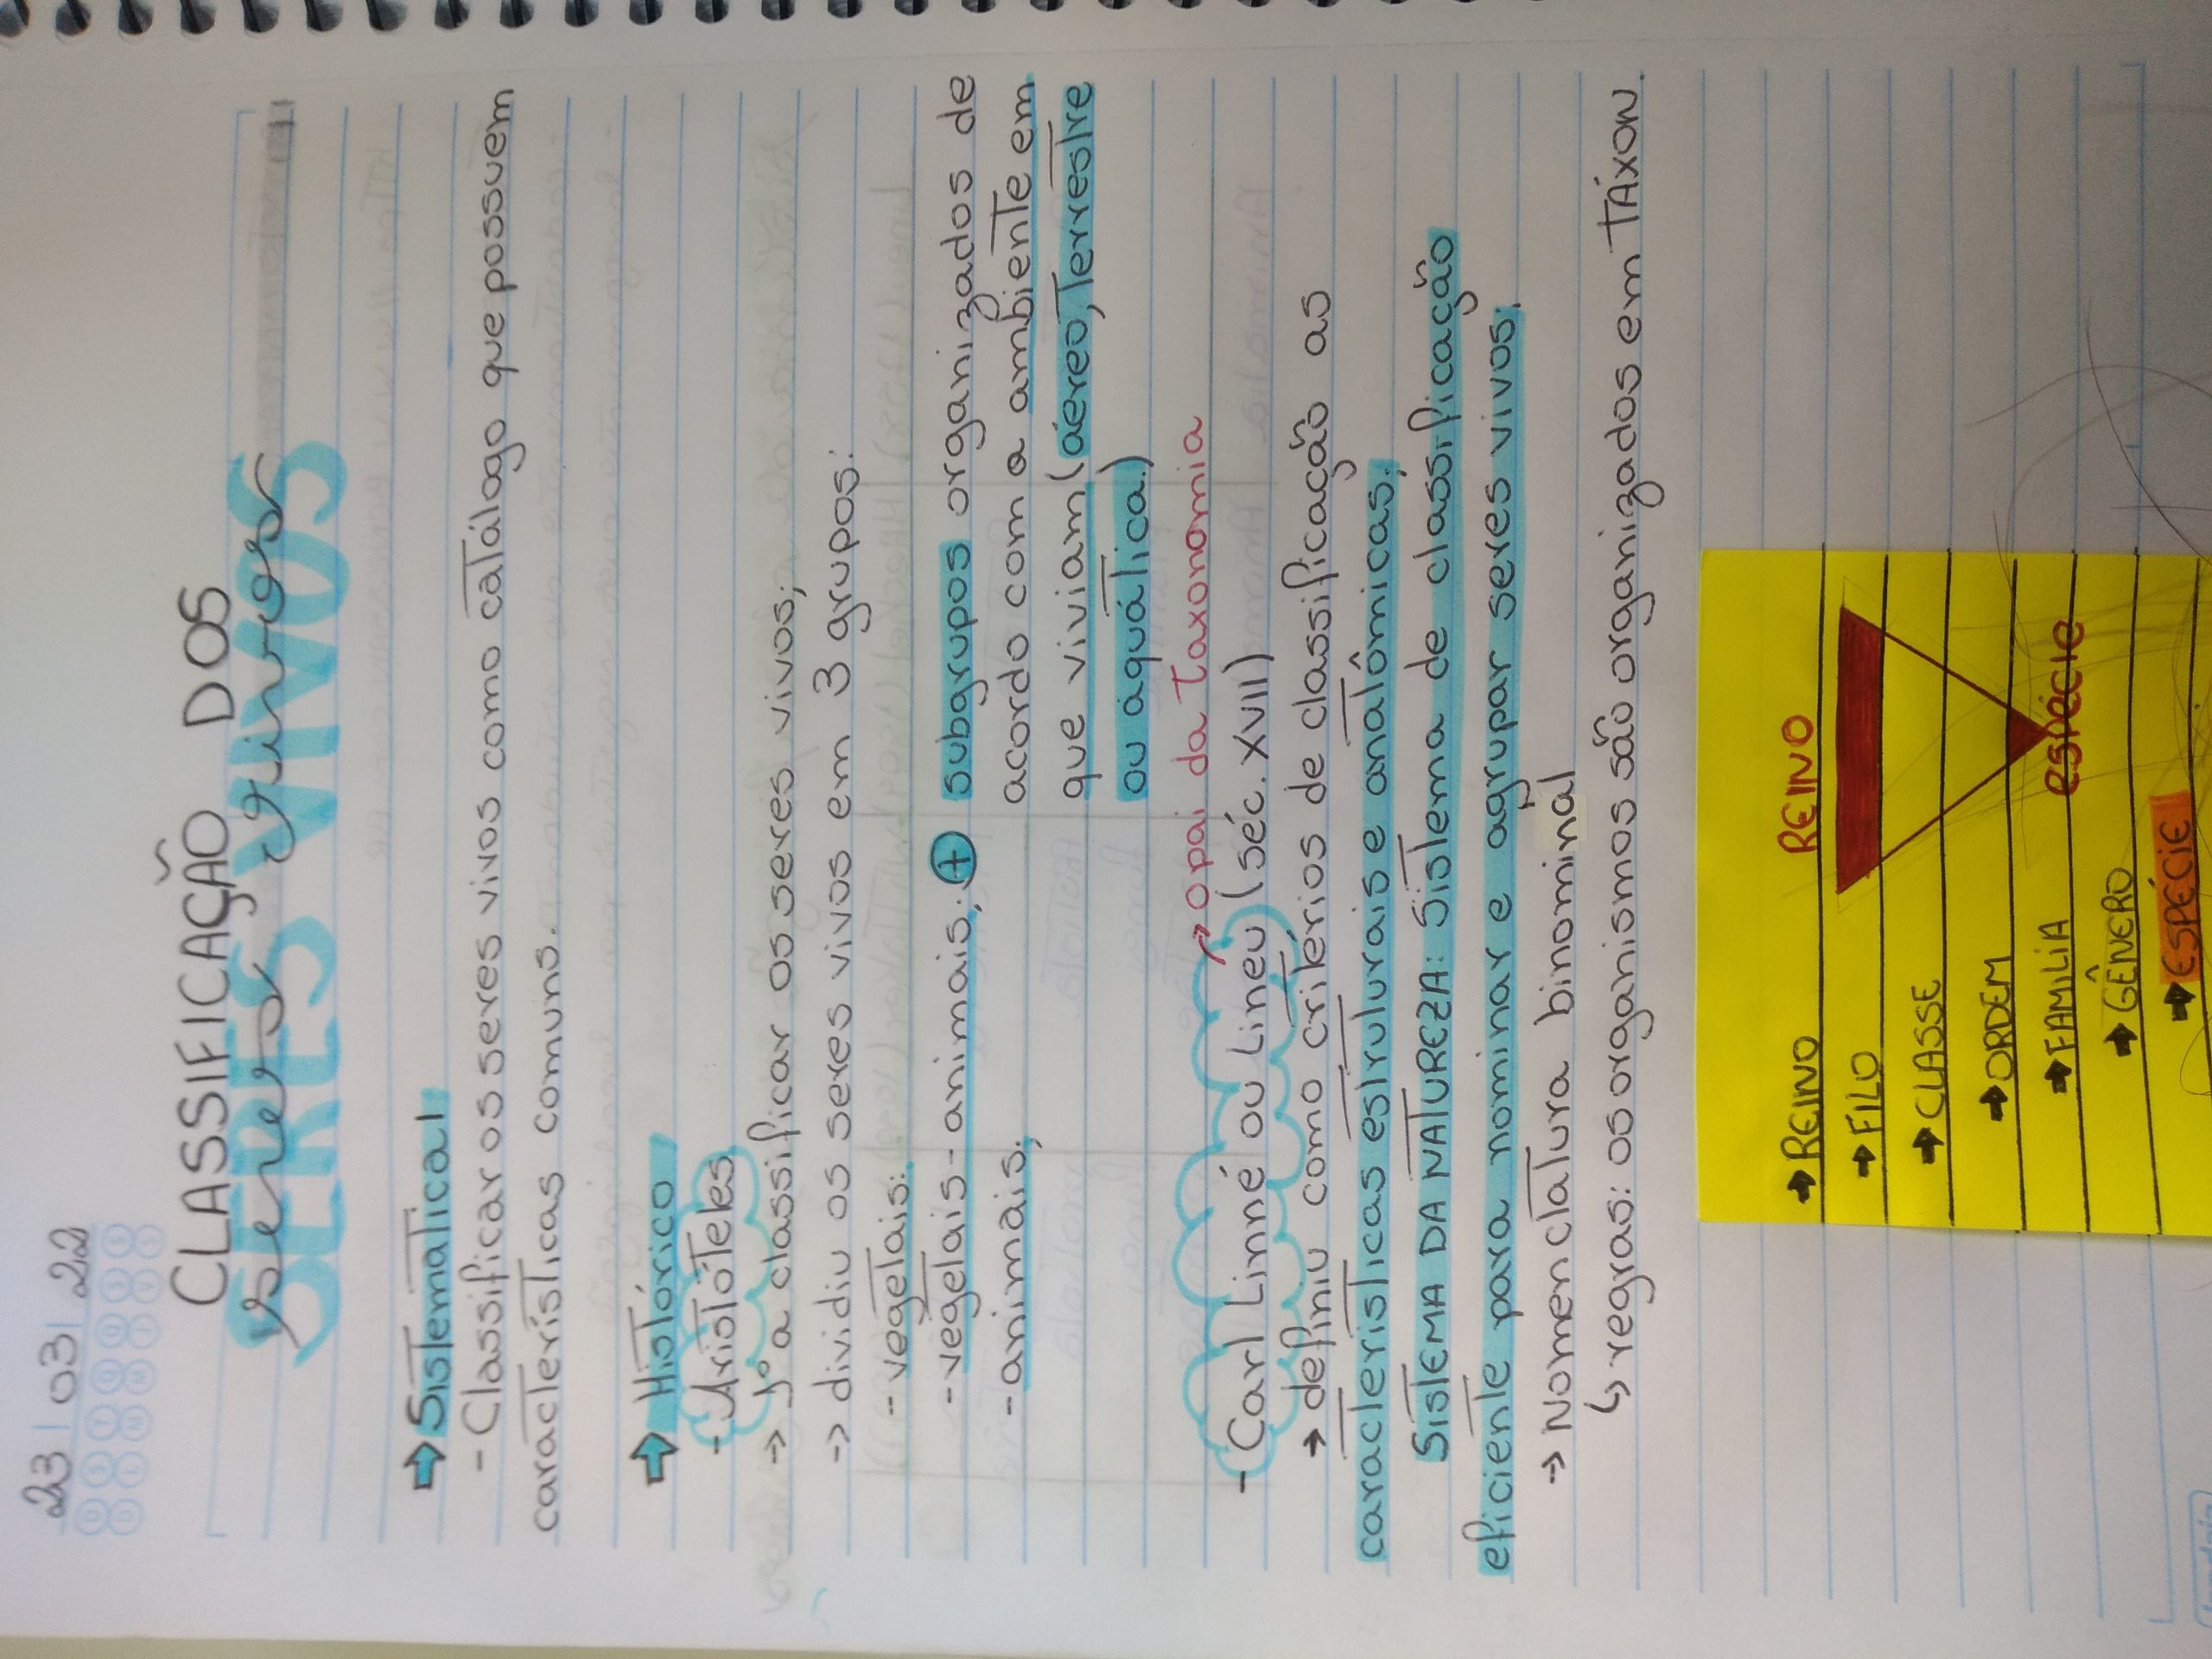 23 | 03 | 22
CLASSIFICAÇÃO DOS
SERES VIVOS
seres vivos
➡ Sistemática1
- Classificar os seres vivos como catálogo que possuem
características comuns.
➡ Histórico
- Aristóteles
→ 1º a classificar os seres vivos;
→ dividiu os seres vivos em 3 grupos:
- vegetais:
- vegetais-animais; + subgrupos organizados de
- animais; acordo com a ambiente em
que viviam (áereo, Terrestre
ou aquática.)
→ o pai da Taxonomia
- Carl Linné ou Lineu (séc. XVIII)
→ definiu como critérios de classificação as
características estruturais e anatômicas;
SISTEMA DA NATUREZA: Sistema de classificação
eficiente para nominar e agrupar seres vivos;
→ Nomenclatura binominal
↳ regras: os organismos são organizados em TÁXON.
➡ REINO REINO
➡ FILO
➡ CLASSE
➡ ORDEM
➡ FAMÍLIA espécie
➡ GÊNERO
➡ ESPÉCIE